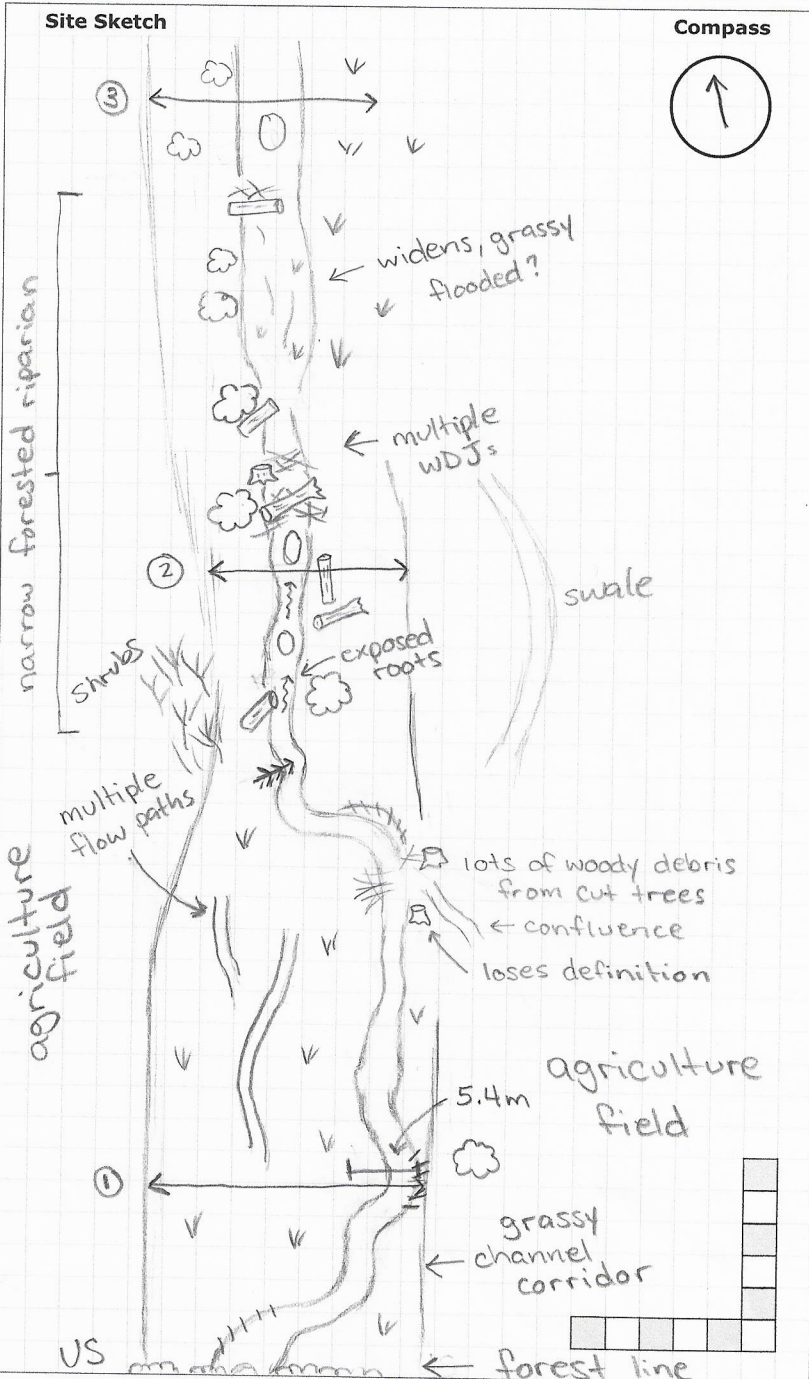 Site Sketch
Compass
3
widens, grassy
flooded?
narrow forested riparian
multiple
WDJs
2
swale
exposed
roots
shrubs
multiple
flow paths
lots of woody debris
from cut trees
← confluence
loses definition
agriculture
field
agriculture
field
5.4m
1
grassy
channel
corridor
US
forest line